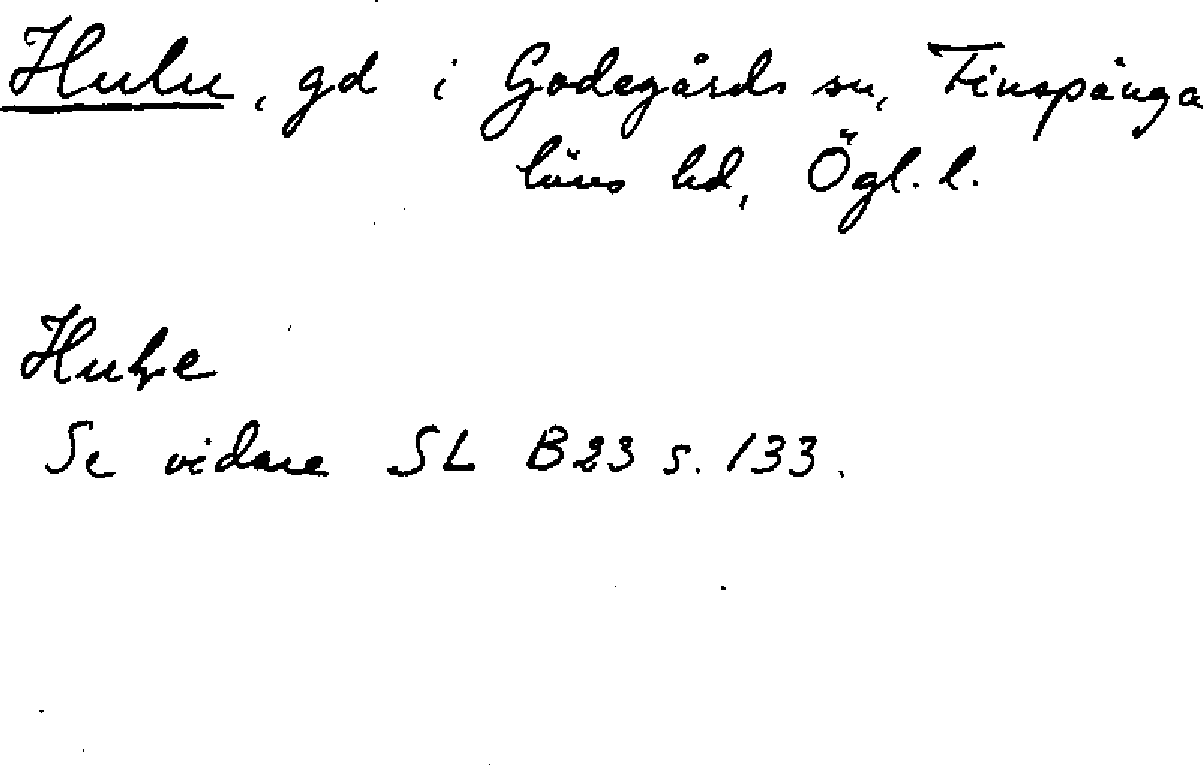 Hulu, gd i Godegårds sn, Finspånga
läns hd, Ögl. l.
Se vidare SL B23 s. 133.